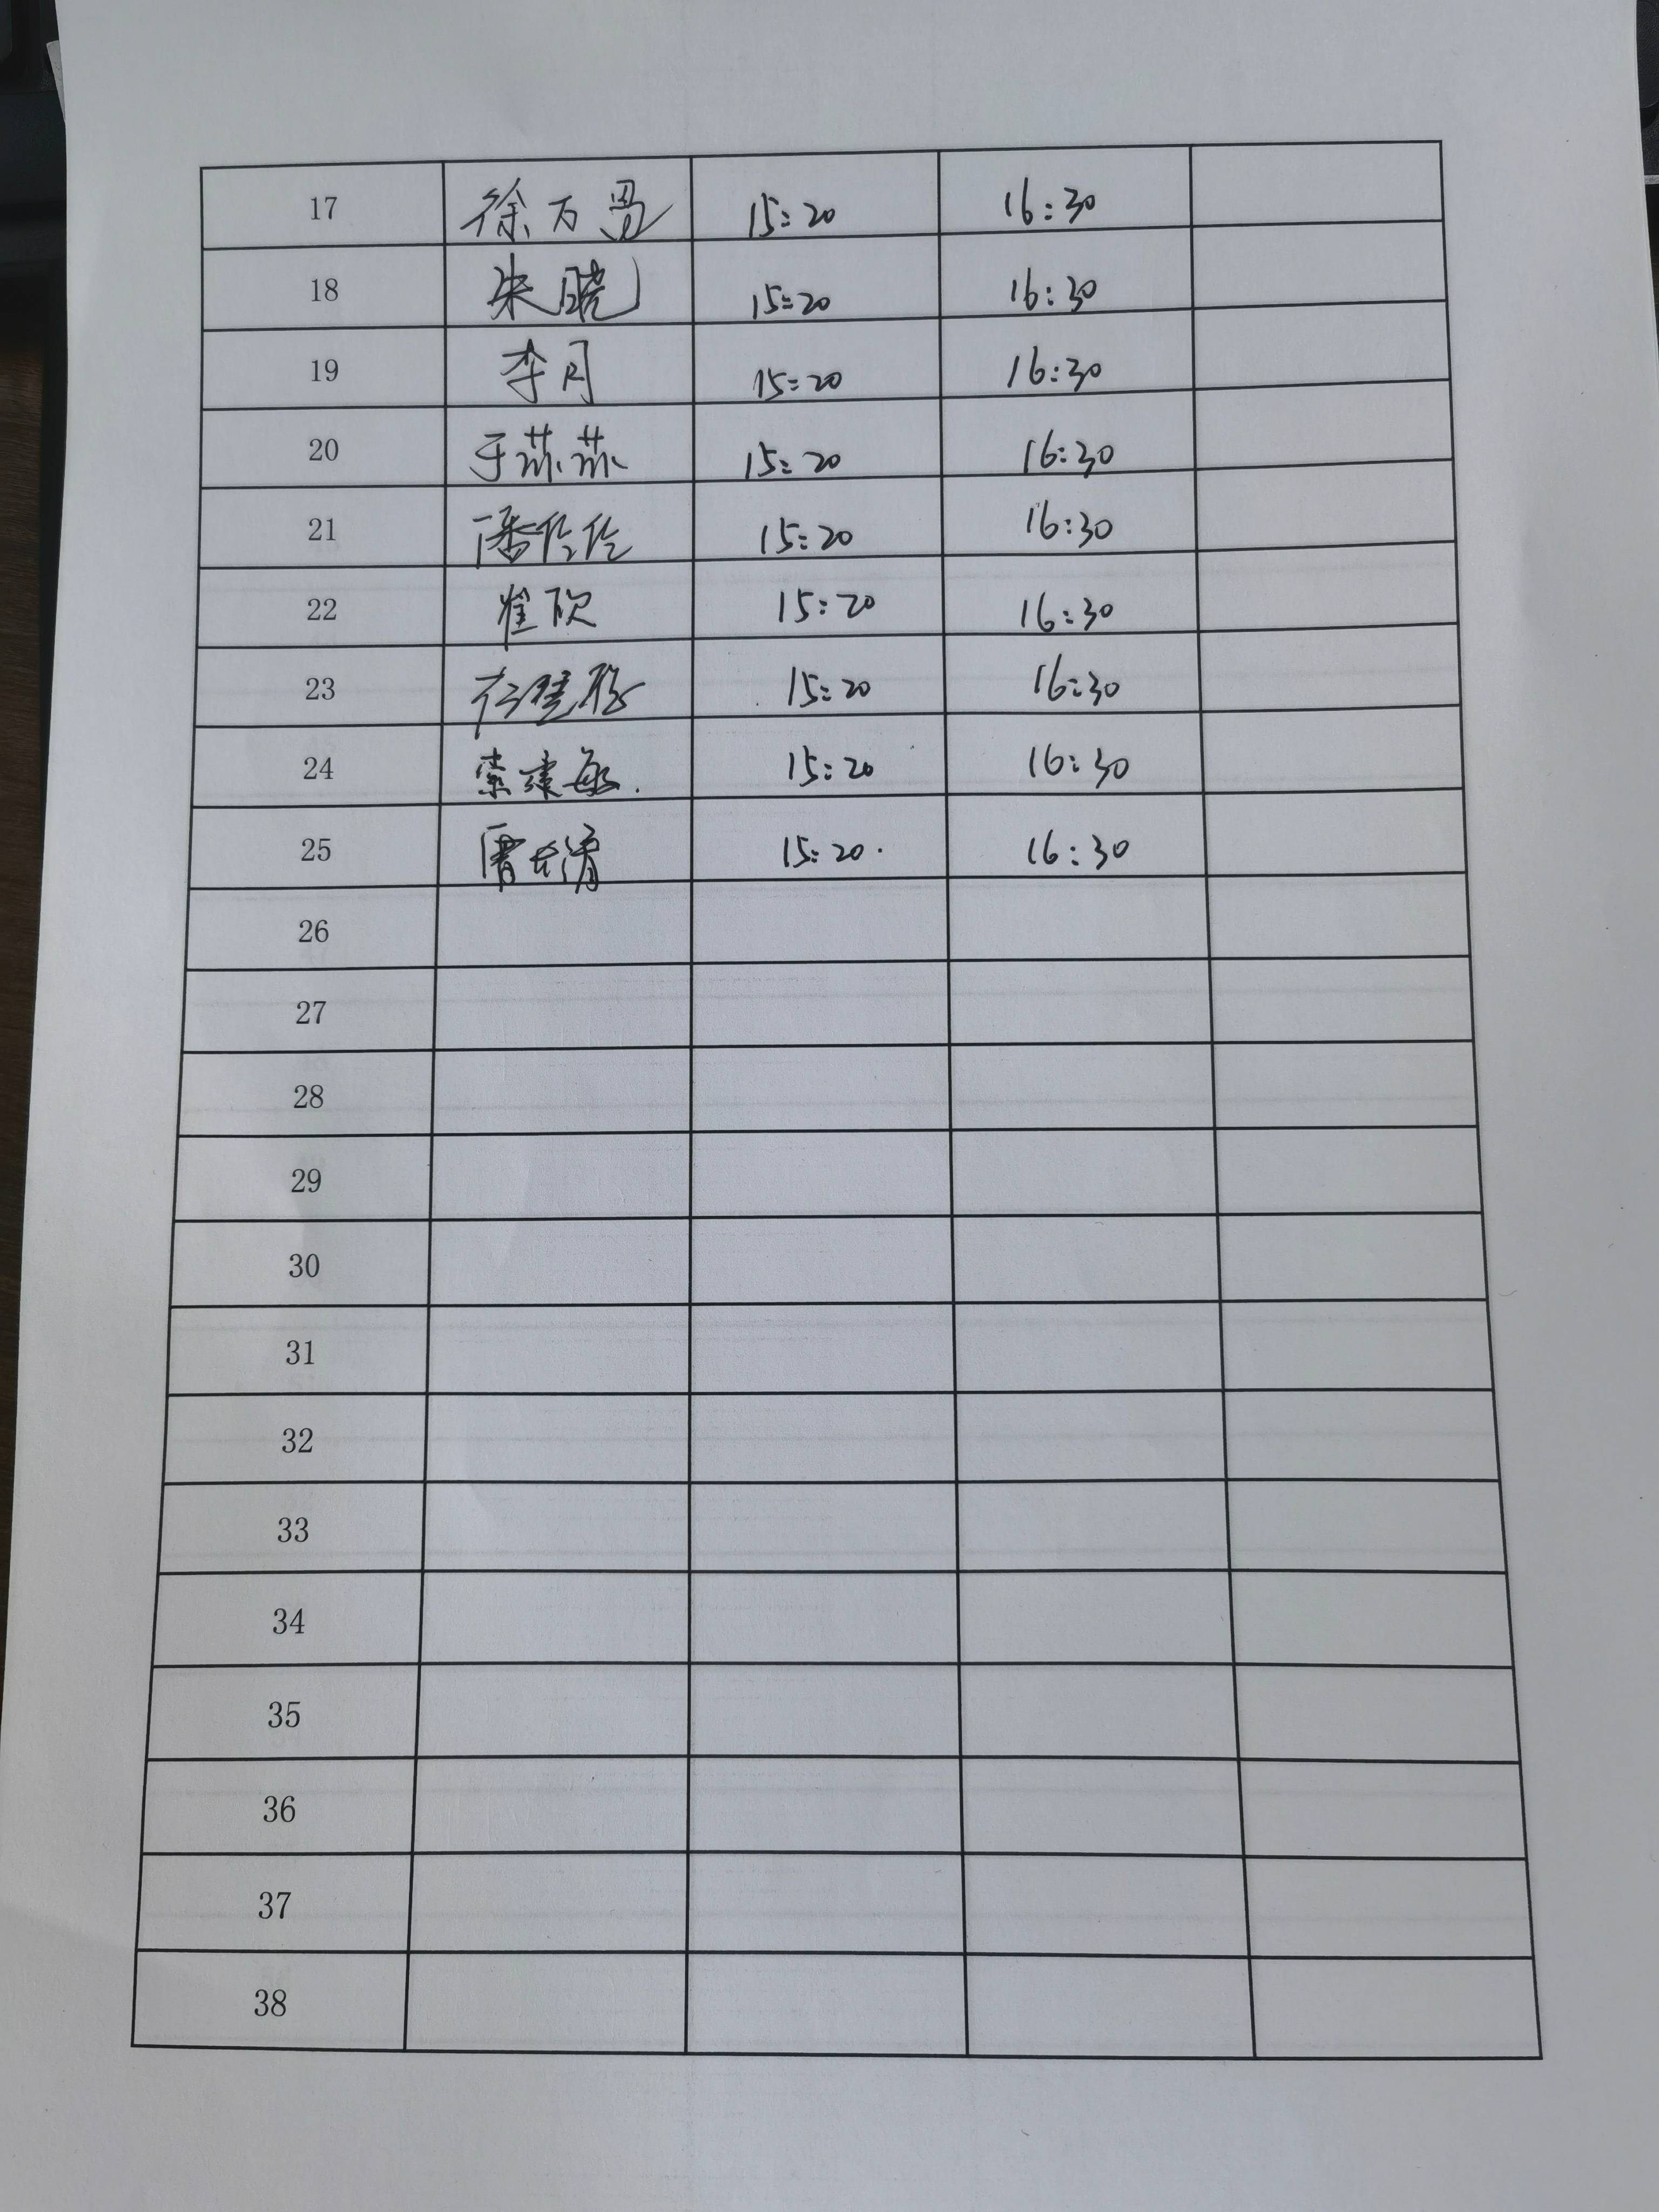 17 徐万勇 15:20 16:30
18 朱晓 15:20 16:30
19 李月 15:20 16:30
20 于燕燕 15:20 16:30
21 潘伶伶 15:20 16:30
22 崔欣 15:20 16:30
23 15:20 16:30
24 索建敏. 15:20 16:30
25 15:20. 16:30
26
27
28
29
30
31
32
33
34
35
36
37
38